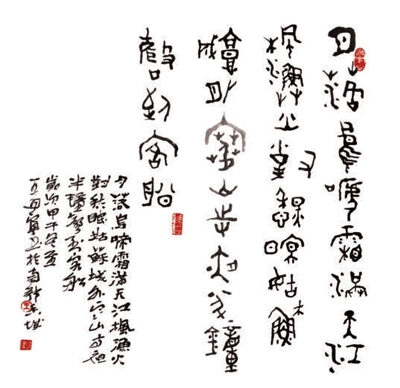 月落烏啼霜滿天江
楓漁火對愁眠姑蘇
城外寒山寺夜半鐘
聲到客船
月落烏啼霜滿天江楓漁火
對愁眠姑蘇城外寒山寺夜
半鐘聲到客船
甲午冬